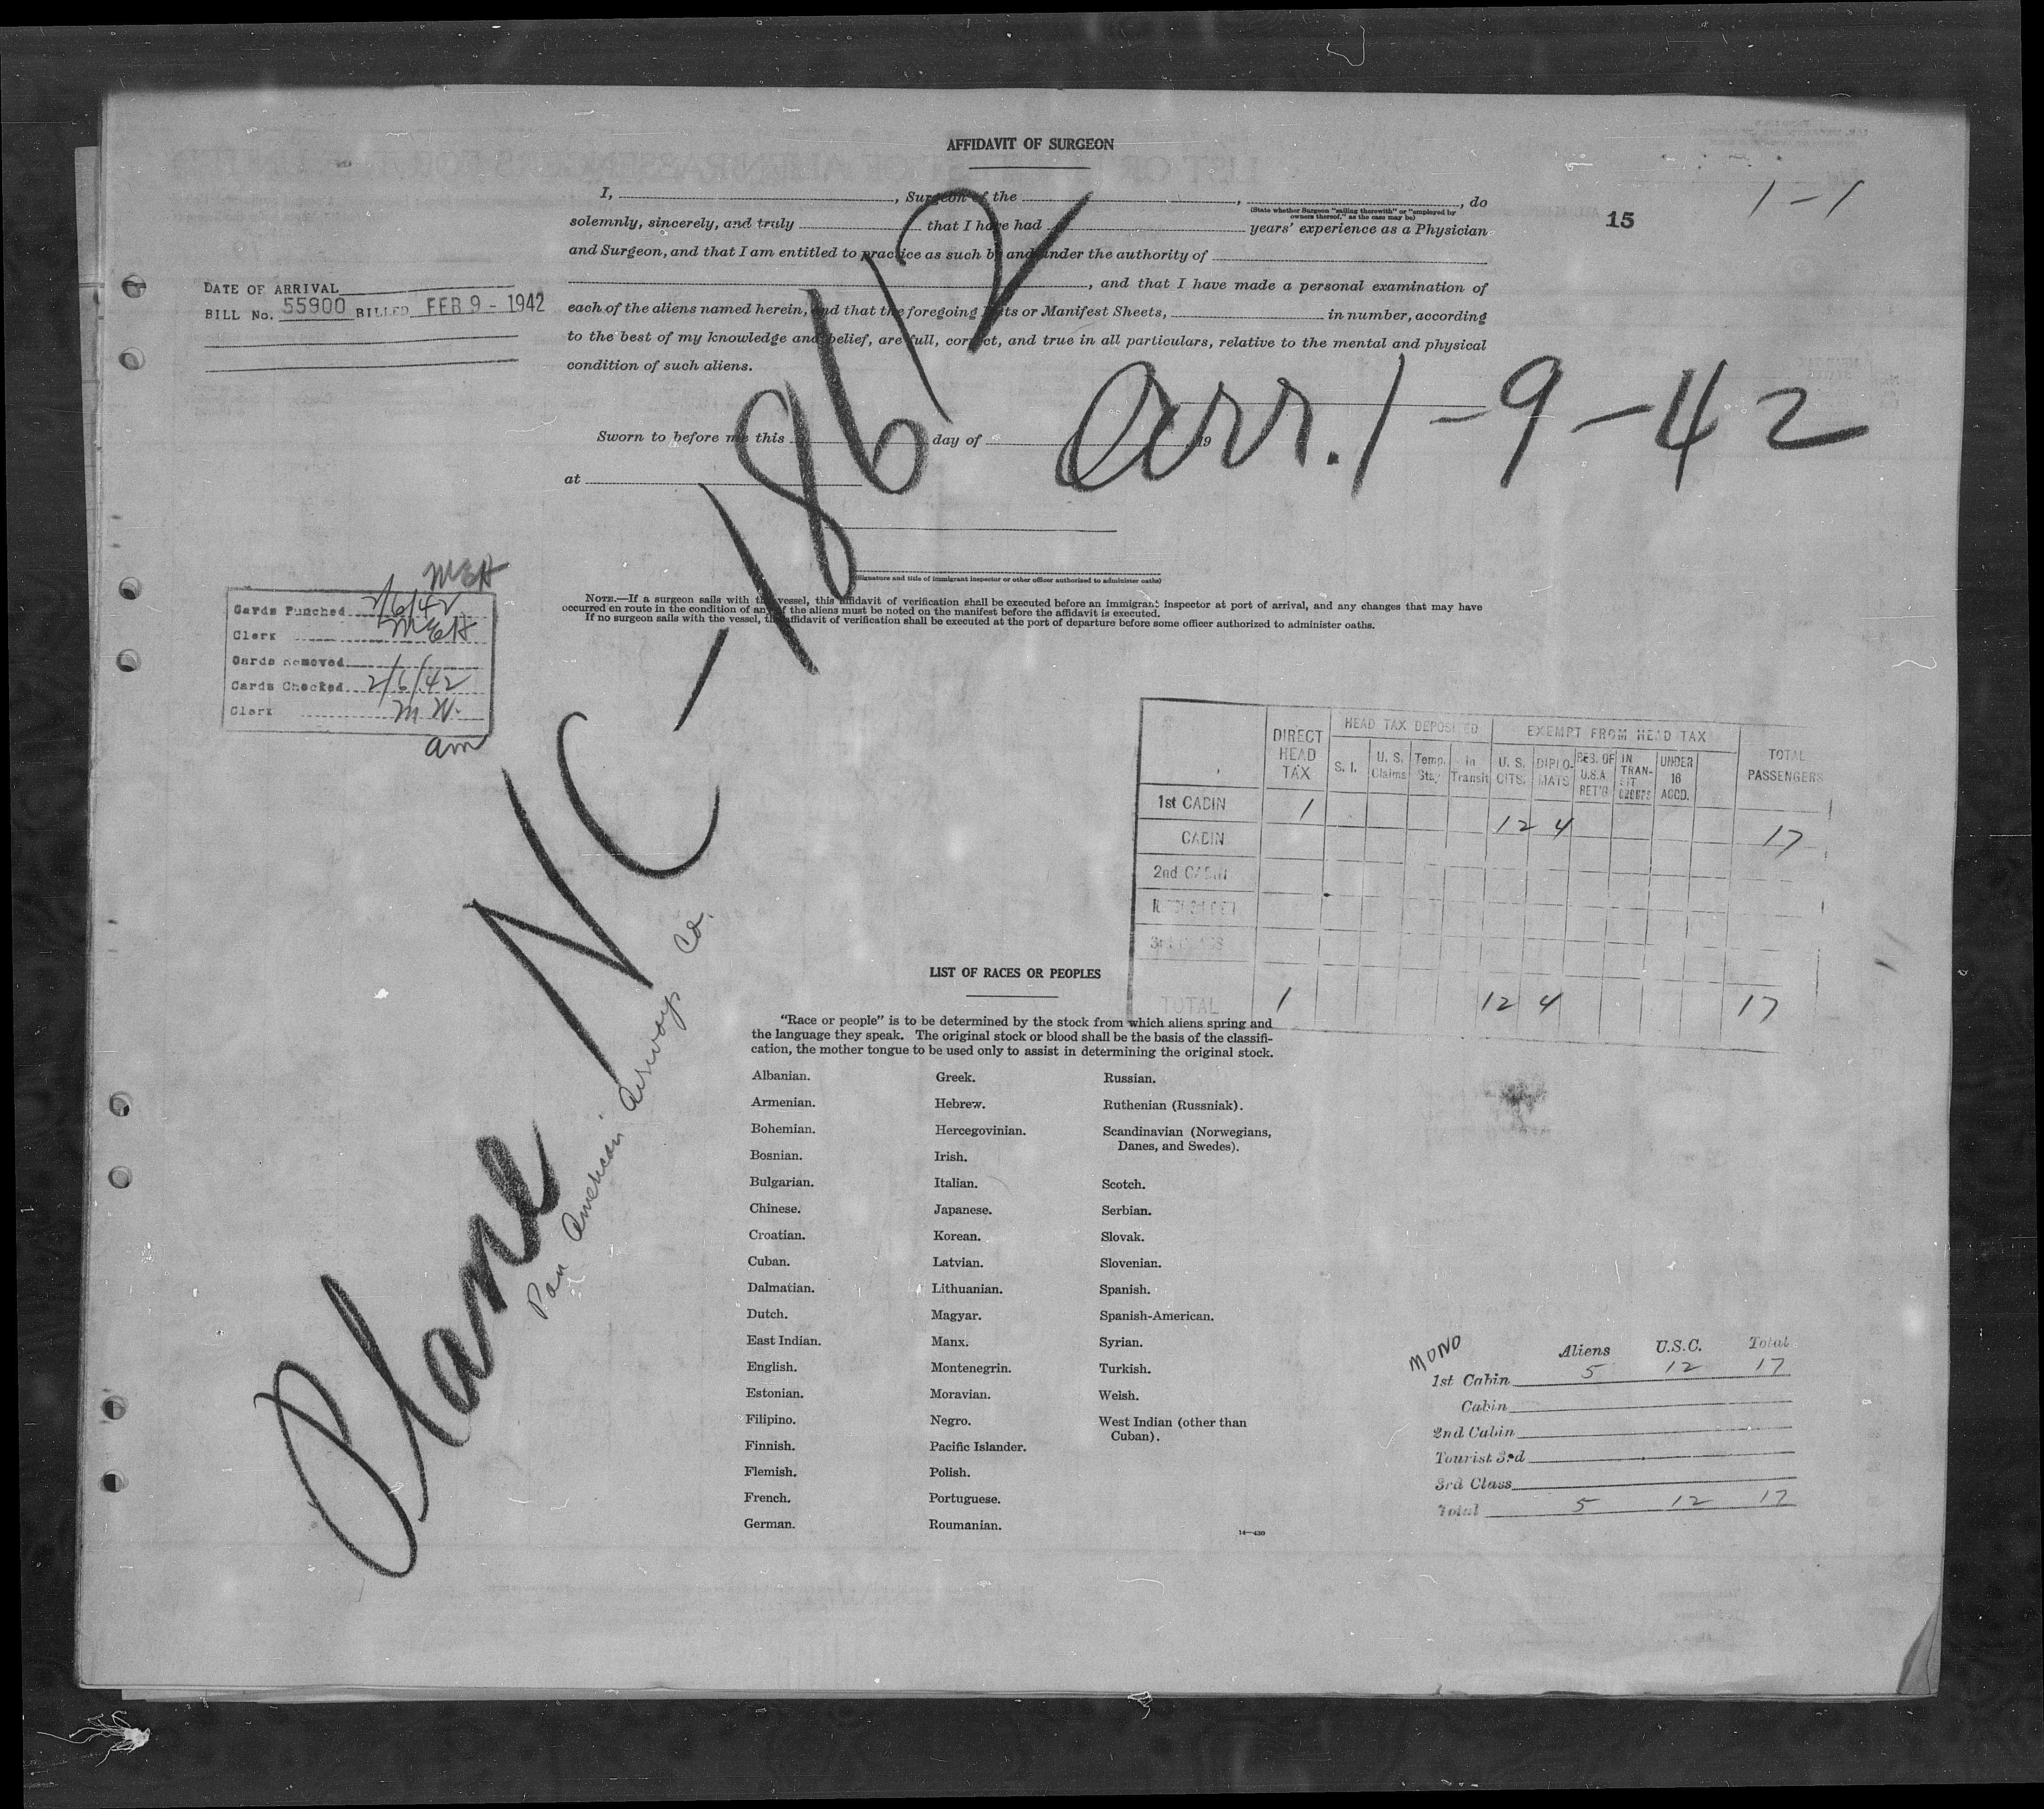 AFFIDAVIT OF SURGEON
I, , Surgeon of the , , do
(State whether Surgeon "sailing therewith" or "employed by
owners thereof," as the case may be)
solemnly, sincerely, and truly that I have had years' experience as a Physician
and Surgeon, and that I am entitled to practice as such by and under the authority of
, and that I have made a personal examination of
each of the aliens named herein, and that the foregoing Lists or Manifest Sheets, in number, according
to the best of my knowledge and belief, are full, correct, and true in all particulars, relative to the mental and physical
condition of such aliens.
Sworn to before me this day of 19
at
(Signature and title of immigrant inspector or other officer authorized to administer oaths)
NOTE.—If a surgeon sails with the vessel, this affidavit of verification shall be executed before an immigrant inspector at port of arrival, and any changes that may have
occurred en route in the condition of any of the aliens must be noted on the manifest before the affidavit is executed.
If no surgeon sails with the vessel, the affidavit of verification shall be executed at the port of departure before some officer authorized to administer oaths.
15
1-1
DATE OF ARRIVAL
BILL No. 55900 BILLED FEB 9 - 1942
arr. 1-9-42
Plane NC-18612
Pan American Airways Co.
MEH
Cards Punched 2/6/42
Clerk MEH
Cards Removed
Cards Checked 2/6/42
Clerk M W.
am
DIRECT HEAD TAX
HEAD TAX DEPOSITED
EXEMPT FROM HEAD TAX
TOTAL PASSENGERS
S. I. U. S. Claims Temp. Stay In Transit U. S. CITS. DIPLO-MATS RES. OF U.S.A. RET'G IN TRAN-SIT GROUPS UNDER 16 ACCD.
1st CABIN 1 12 4 17
CABIN
2nd CABIN
3rd CLASS
TOTAL 1 12 4 17
LIST OF RACES OR PEOPLES
"Race or people" is to be determined by the stock from which aliens spring and
the language they speak. The original stock or blood shall be the basis of the classifi-
cation, the mother tongue to be used only to assist in determining the original stock.
Albanian.
Armenian.
Bohemian.
Bosnian.
Bulgarian.
Chinese.
Croatian.
Cuban.
Dalmatian.
Dutch.
East Indian.
English.
Estonian.
Filipino.
Finnish.
Flemish.
French.
German.
Greek.
Hebrew.
Hercegovinian.
Irish.
Italian.
Japanese.
Korean.
Latvian.
Lithuanian.
Magyar.
Manx.
Montenegrin.
Moravian.
Negro.
Pacific Islander.
Polish.
Portuguese.
Roumanian.
Russian.
Ruthenian (Russniak).
Scandinavian (Norwegians,
Danes, and Swedes).
Scotch.
Serbian.
Slovak.
Slovenian.
Spanish.
Spanish-American.
Syrian.
Turkish.
Welsh.
West Indian (other than
Cuban).
14—430
MONO
Aliens U.S.C. Total
1st Cabin 5 12 17
Cabin
2nd Cabin
Tourist 3rd
3rd Class
Total 5 12 17